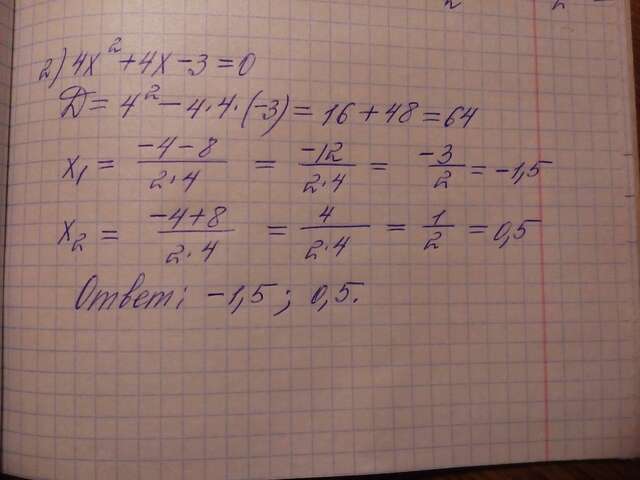 2) 4x² + 4x - 3 = 0
D = 4² - 4·4·(-3) = 16 + 48 = 64
x₁ = (-4-8)/(2·4) = -12/(2·4) = -3/2 = -1,5
x₂ = (-4+8)/(2·4) = 4/(2·4) = 1/2 = 0,5
Ответ: -1,5; 0,5.